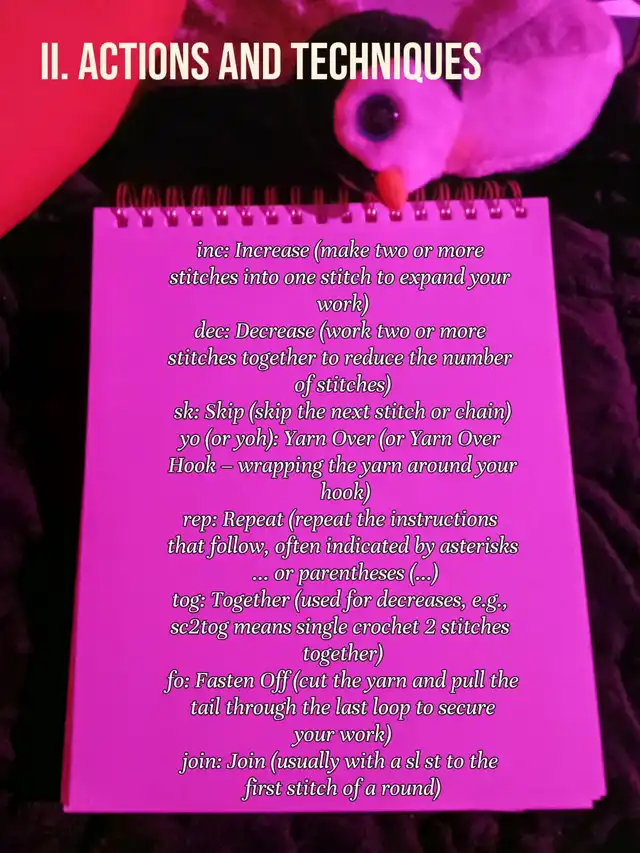 II. ACTIONS AND TECHNIQUES
inc: Increase (make two or more
stitches into one stitch to expand your
work)
dec: Decrease (work two or more
stitches together to reduce the number
of stitches)
sk: Skip (skip the next stitch or chain)
yo (or yoh): Yarn Over (or Yarn Over
Hook – wrapping the yarn around your
hook)
rep: Repeat (repeat the instructions
that follow, often indicated by asterisks
... or parentheses (...)
tog: Together (used for decreases, e.g.,
sc2tog means single crochet 2 stitches
together)
fo: Fasten Off (cut the yarn and pull the
tail through the last loop to secure
your work)
join: Join (usually with a sl st to the
first stitch of a round)